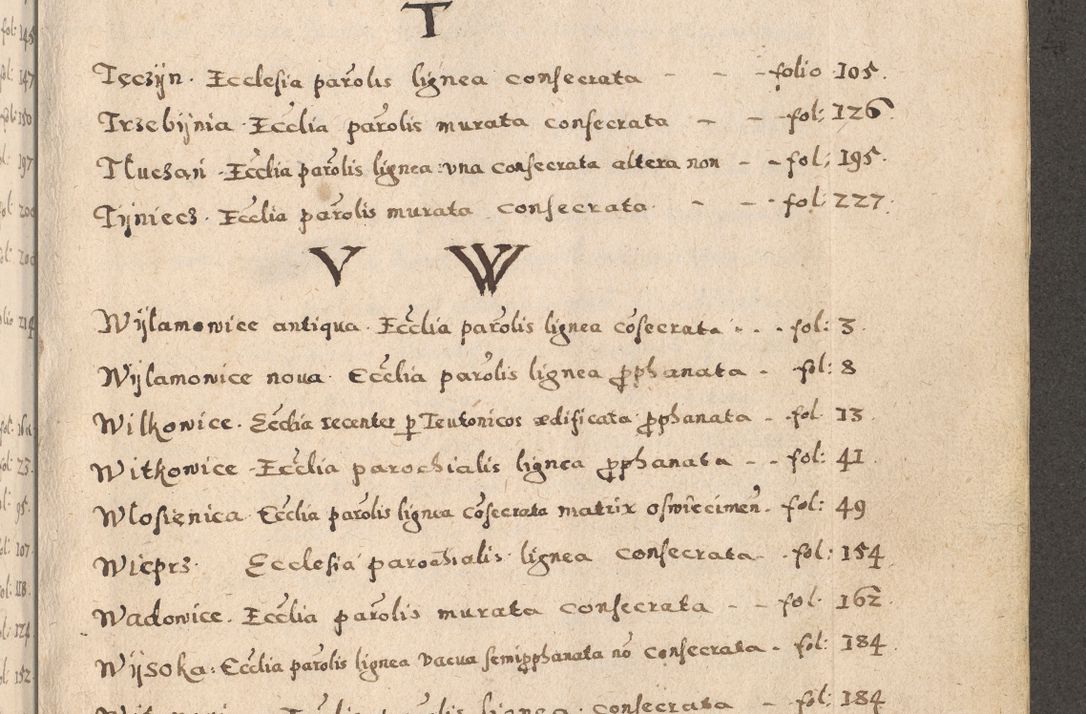 T
Tęczÿn. Ecclesia parolis lignea consecrata - - - folio 105.
Trzebÿnia. Ecclia parolis murata consecrata - - - fol: 126
Tłuczań. Ecclia parolis lignea vna consecrata altera non - - fol: 195.
Tÿniecz. Ecclia parolis murata consecrata. - - - fol: 227.
V W
Wÿlamowice antiqua. Ecclia parolis lignea cōsecrata - - - fol: 3.
Wÿlamowice noua. Ecclia parolis lignea ꝓphanata - fol: 8
Wilkowice. Ecclia recenter ꝑ Teutonicos ædificata ꝓphanata - - fol. 13.
Witkowice. Ecclia parochialis lignea ꝓphanata - - fol: 41.
Włosienica. Ecclia parolis lignea cōsecrata matrix oswiecimen. fol: 49
Wieprz. Ecclesia parochialis lignea consecrata - fol: 154
Wadowice. Ecclia parolis murata consecrata - - fol. 162.
Wÿsoka. Ecclia parolis lignea vacua semiꝓphanata nō consecrata - fol: 184.
parolis lignea consecrata fol: 184
fol: 145
fol: 147
197
107
fol: 118
fol: 124
152